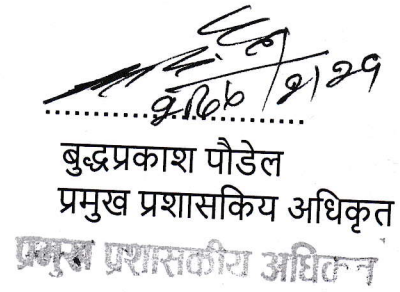 बुद्धप्रकाश पौडेल
प्रमुख प्रशासकिय अधिकृत
प्रमुख प्रशासकीय अधिकृत